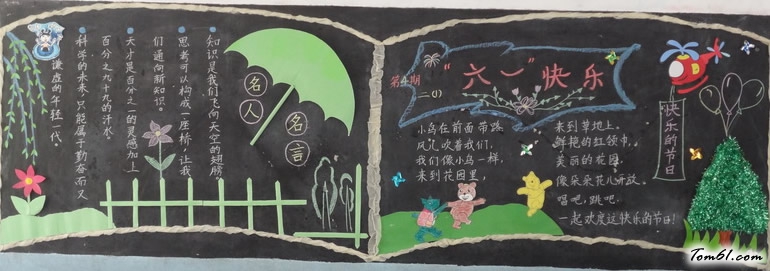 名人
名言
知识是我们飞向天空的翅膀
思考可以构成一座桥,让我
们通向新知识。
天才是百分之一的灵感加上
百分之九十九的汗水。
科学的未来,只能属于勤奋而又
谦虚的年轻一代。
第4期
二(1)
"六一"快乐
小鸟在前面带路,
风儿吹着我们,
我们像小鸟一样,
来到花园里,
来到草地上。
鲜艳的红领巾,
美丽的花园
像朵朵花儿开放。
唱吧,跳吧,
一起欢度这快乐的节日!
快乐的节日
Tom61.com